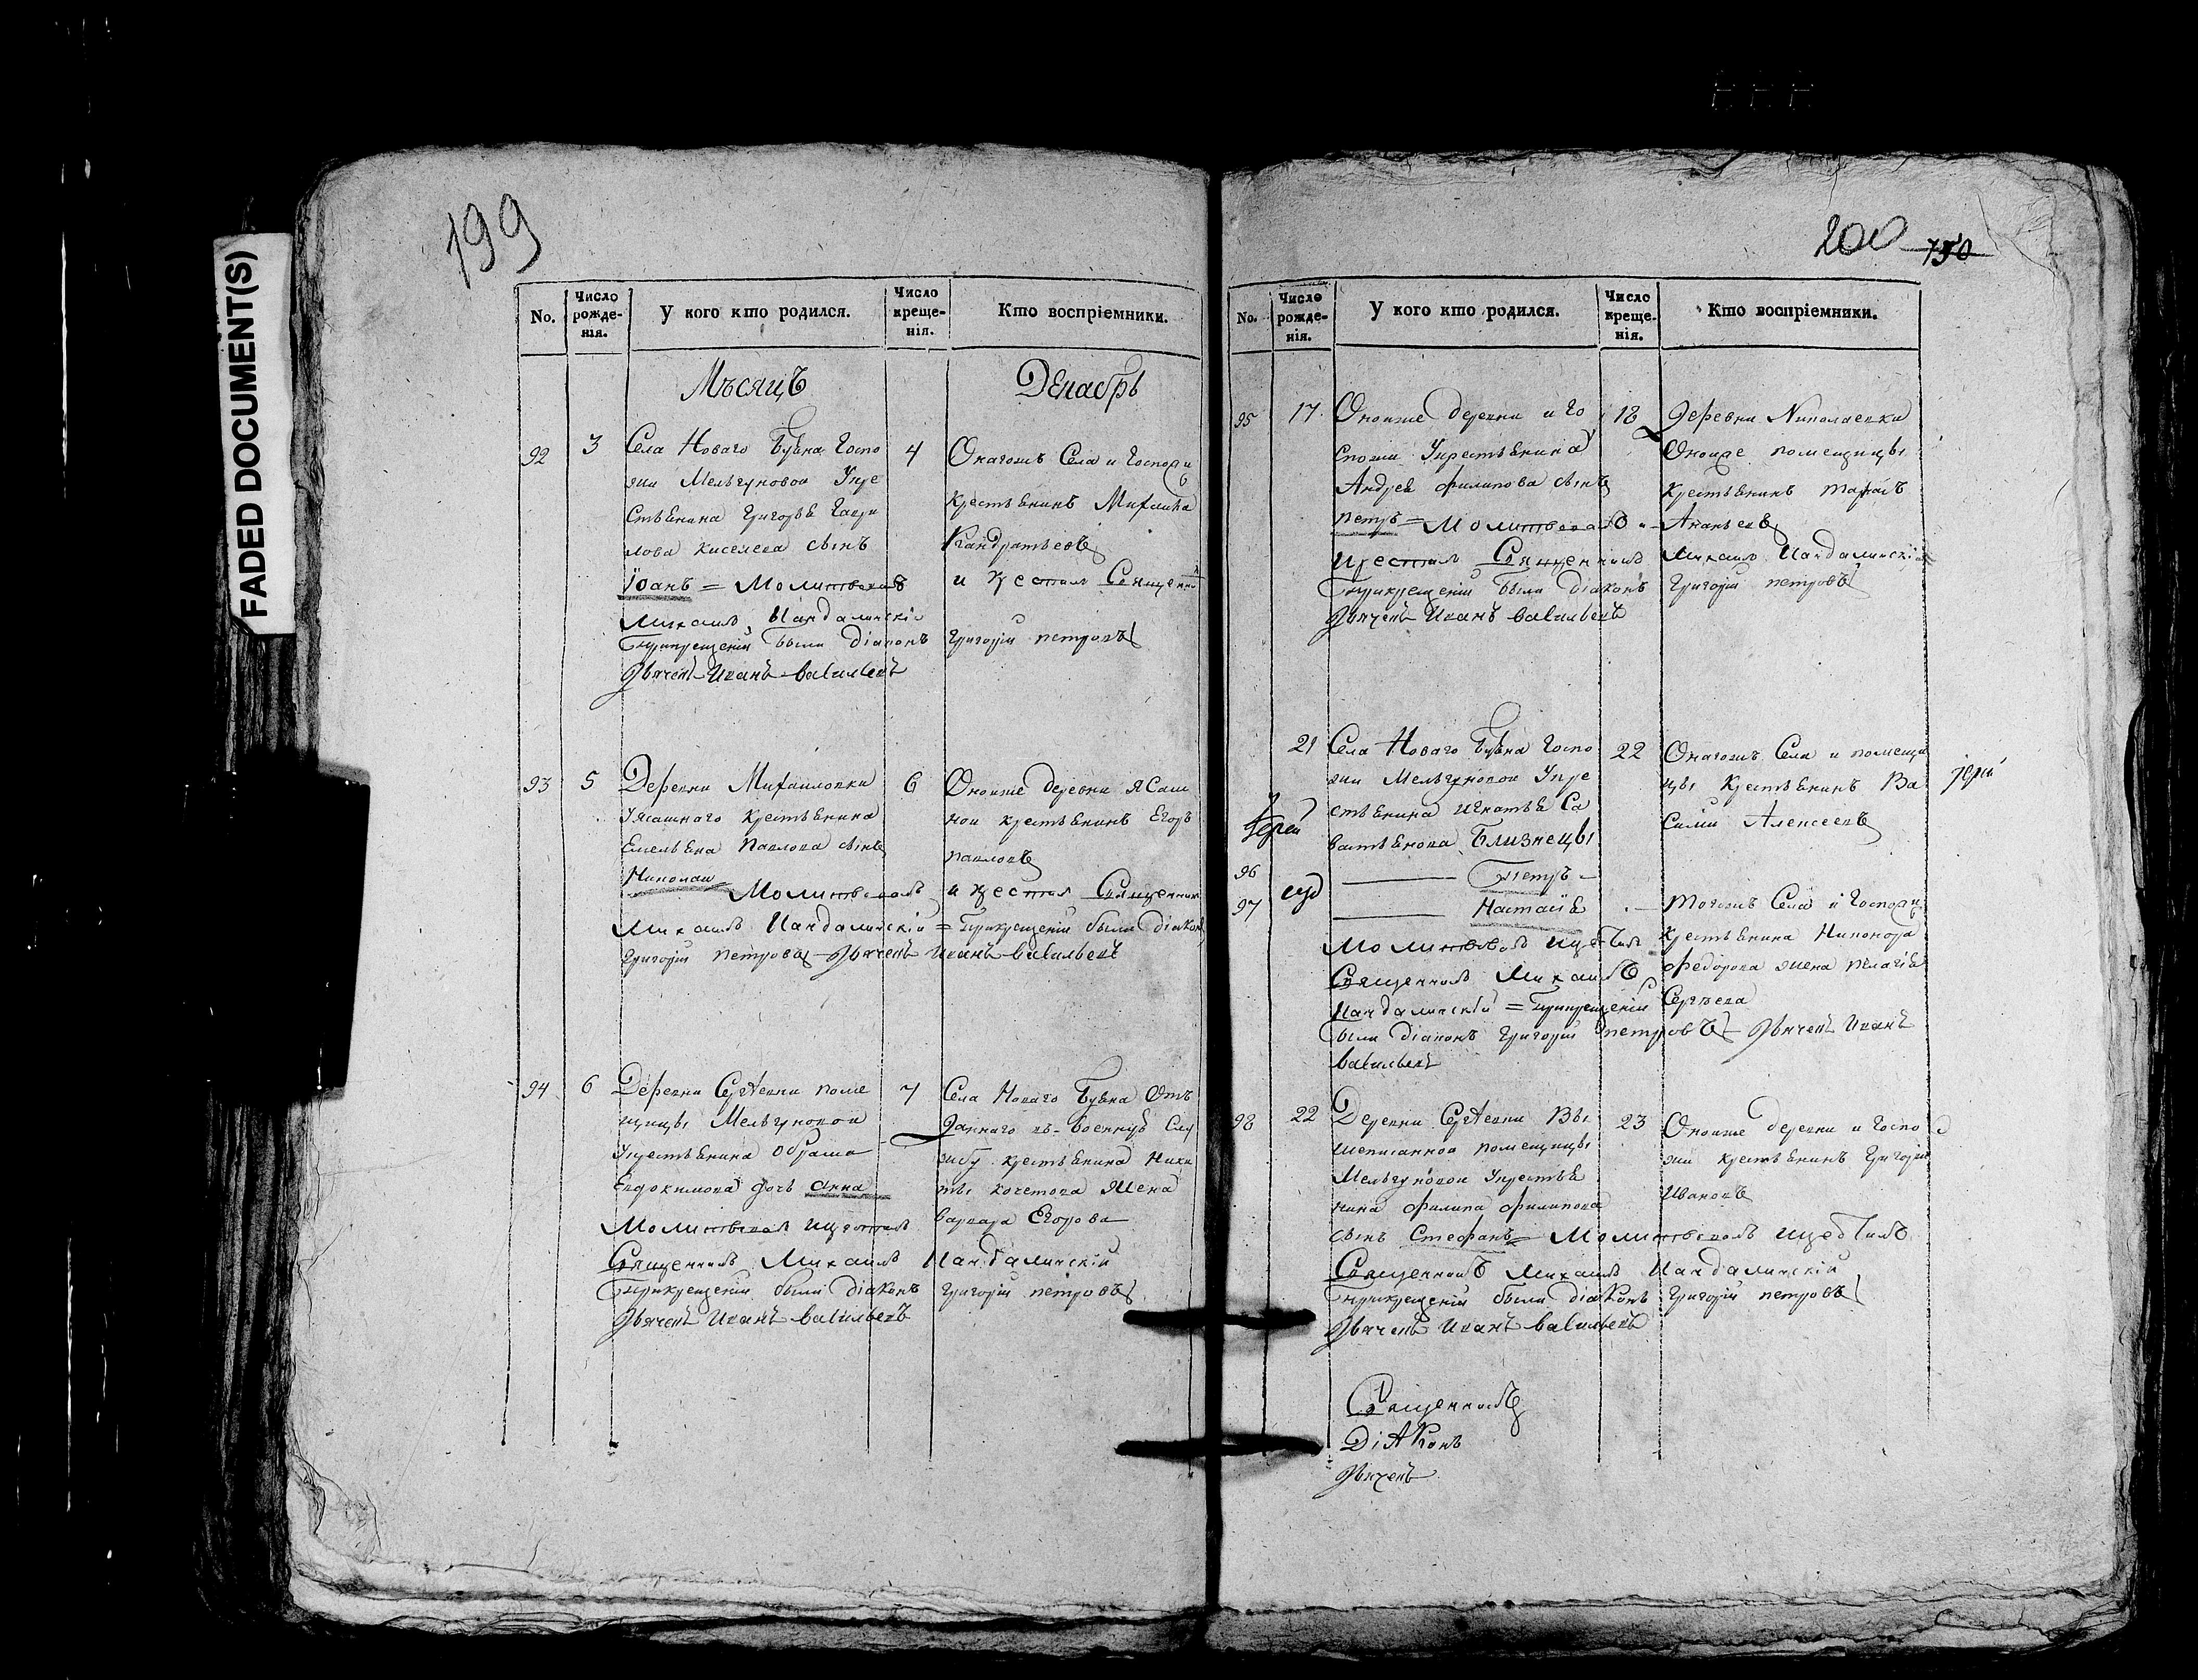 FADED DOCUMENT(S)
199
No.
Число рожде-нія.
У кого кто родился.
Число креще-нія.
Кто воспріемники.
Мѣсяцъ
Декабрь
92
3
Села Новаго Буяна Госпо
жи Мельгуновой У кре
стьянина Григорья Гаври
лова Киселева сынъ
Іоанъ = Молитвовалъ
Михаилъ
При крещеніи были діаконъ
Дьячекъ Иванъ Васильевъ
4
Онагожъ Села и Госпожи
крестьянинъ Михаила
Кандратьевъ
и крестилъ Священни
Григорій Петровъ
93
5
Деревни Михаиловки
У ясашнаго крестьянина
Емельяна Павлова сынъ
Николай
Молитвовалъ
Михаилъ
Григорій Петровъ Дьячекъ
6
Оноиже деревни ясаш
ной крестьянинъ Егоръ
Павловъ
и крестилъ Священник
= При крещеніи были діакон
Иванъ Васильевъ
94
6
Деревни Сергѣевки поме
щицы Мельгуновой
У крестьянина
Евдокимова дочь Анна
Молитвовалъ и крестилъ
Священникъ Михаилъ
При крещеніи были діаконъ
Дьячекъ Иванъ Васильевъ
7
Села Новаго Буяна Отъ
даннаго въ военную Слу
жбу крестьянина Ники
ты Кочетова жена
Варвара Егорова
Григорій Петровъ
200 750
No.
Число рожде-нія.
У кого кто родился.
Число креще-нія.
Кто воспріемники.
95
17
Оноиже деревни и Го
спожи У крестьянина
Андрея Филипова сынъ
Петръ = Молитвовалъ
и крестилъ Священникъ
При крещеніи были діаконъ
Дьячекъ Иванъ Васильевъ
18
Деревни Николаевки
Оноиже помещицы
крестьянинъ Тарасъ
Ананьевъ
Михаилъ
Григорій Петровъ
21
Села Новаго Буяна Госпо
жи Мельгуновой У кре
стьянина Игнатья Са
вастьянова Близнецы
96
Петръ
97
Настасія
Молитвовалъ и крестилъ
Священникъ Михаилъ
= При крещеніи
были діаконъ Григорій Петровъ Дьячекъ Иванъ
Васильевъ
22
Онагожъ Села и помещи
цы крестьянинъ Ва
силий Алексеевъ
Тогожъ Села и Госпожи
крестьянина Никонора
Федорова жена Пелагія
Сергѣева
98
22
Деревни Сергѣевки Вы
шеписанной помещицы
Мельгуновой У крестья
нина Филипа Филипова
сынъ Стефанъ = Молитвовалъ и крестилъ
Священникъ Михаилъ
При крещеніи были діаконъ Григорій Петровъ
Дьячекъ Иванъ Васильевъ
23
Оноиже деревни и Госпо
жи крестьянинъ Григорій
Ивановъ
Священникъ
Діаконъ
Дьячекъ